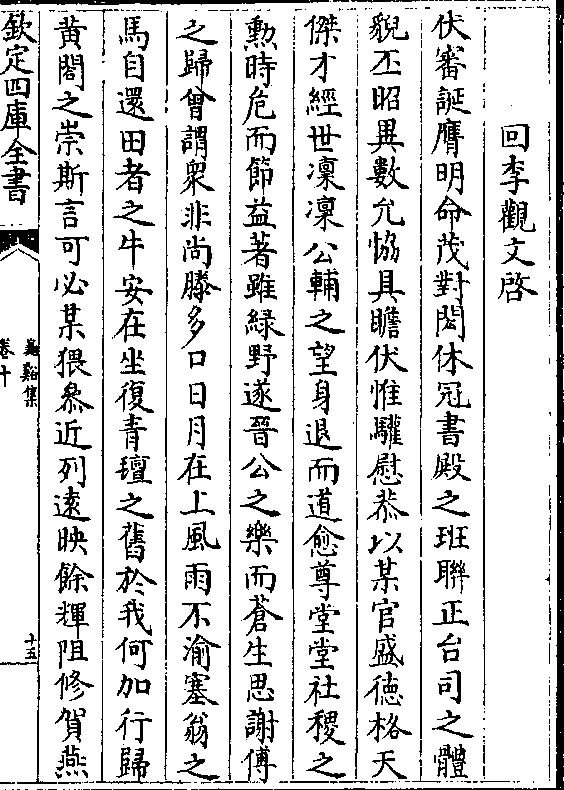 回李觀文啓
伏審誕膺明命茂對閎休冠書殿之班聯正台司之體
貌丕昭異數允恊具瞻伏惟驩慰恭以某官盛徳格天
傑才經世凜凜公輔之望身退而道愈尊堂堂社稷之
勲時危而節益著雖緑野遂晉公之樂而蒼生思謝傅
之歸曾謂衆非尚賸多口日月在上風雨不渝塞翁之
馬自還田者之牛安在坐復青氊之舊於我何加行歸
黄閣之崇斯言可必某猥叅近列逺映餘輝阻修賀燕
欽定四庫全書
卷十
十五